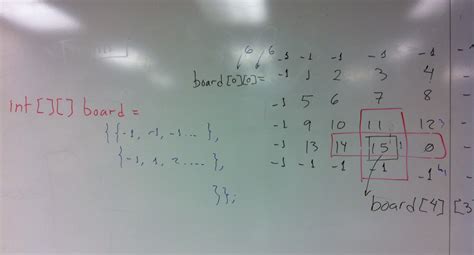 -1 -1 -1 -1 -1 -
6 6
board[0][0]= -1 1 2 3 4 -
-1 5 6 7 8 -
int[][] board =
{{-1, -1, -1 .... },
-1 9 10 11 12 -
-1 13 14 15 0 -
{-1, 1, 2 .... },
-1 -1 -1 -1 -1
}};
board[4] [3